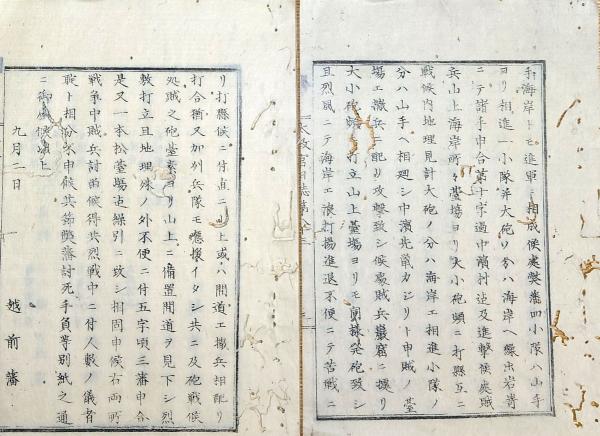 手海岸トモ進軍ニ相成候處弊藩四小隊ハ山手
ヨリ相進一小隊并大砲ノ分ハ海岸ヘ繰出岩寄
ニテ諸手申合第十字過中濱村迠及進撃候處賊
兵山上海岸所々臺場ヨリ大小砲頻ニ打懸互ニ
戦候内地理見計大砲ノ分ハ海岸エ相進小隊ノ
分ハ山手ヘ相廻シ中濱先鼠カジリト申賊ノ臺
場エ撒兵ニ配リ攻撃致シ候處賊兵巖窟ニ據リ
大小砲頻ニ打立山上臺場ヨリモ発砲致シ
且烈風ニテ海岸エ浪打揚進退不便ニテ苦戦ニ
太政官日誌第
リ打懸候ニ付直ニ山上或ハ間道エ撒兵相配リ
打合猶又加州兵隊モ應援イタシ共ニ及砲戦候
処賊之砲臺素ヨリ山上ニ備置間道ヲ見下シ烈
敷打立且地理殊ノ外不便ニ付五字頃三藩申合
是又一本松臺場迠繰引ニ致シ相固申候右両所
戦争中賊兵討留候得共烈戦中ニ付人數ノ儀者
聢ト相分不申候共節弊藩討死手負等別紙之通
ニ御座候以上
九月二日
越前藩